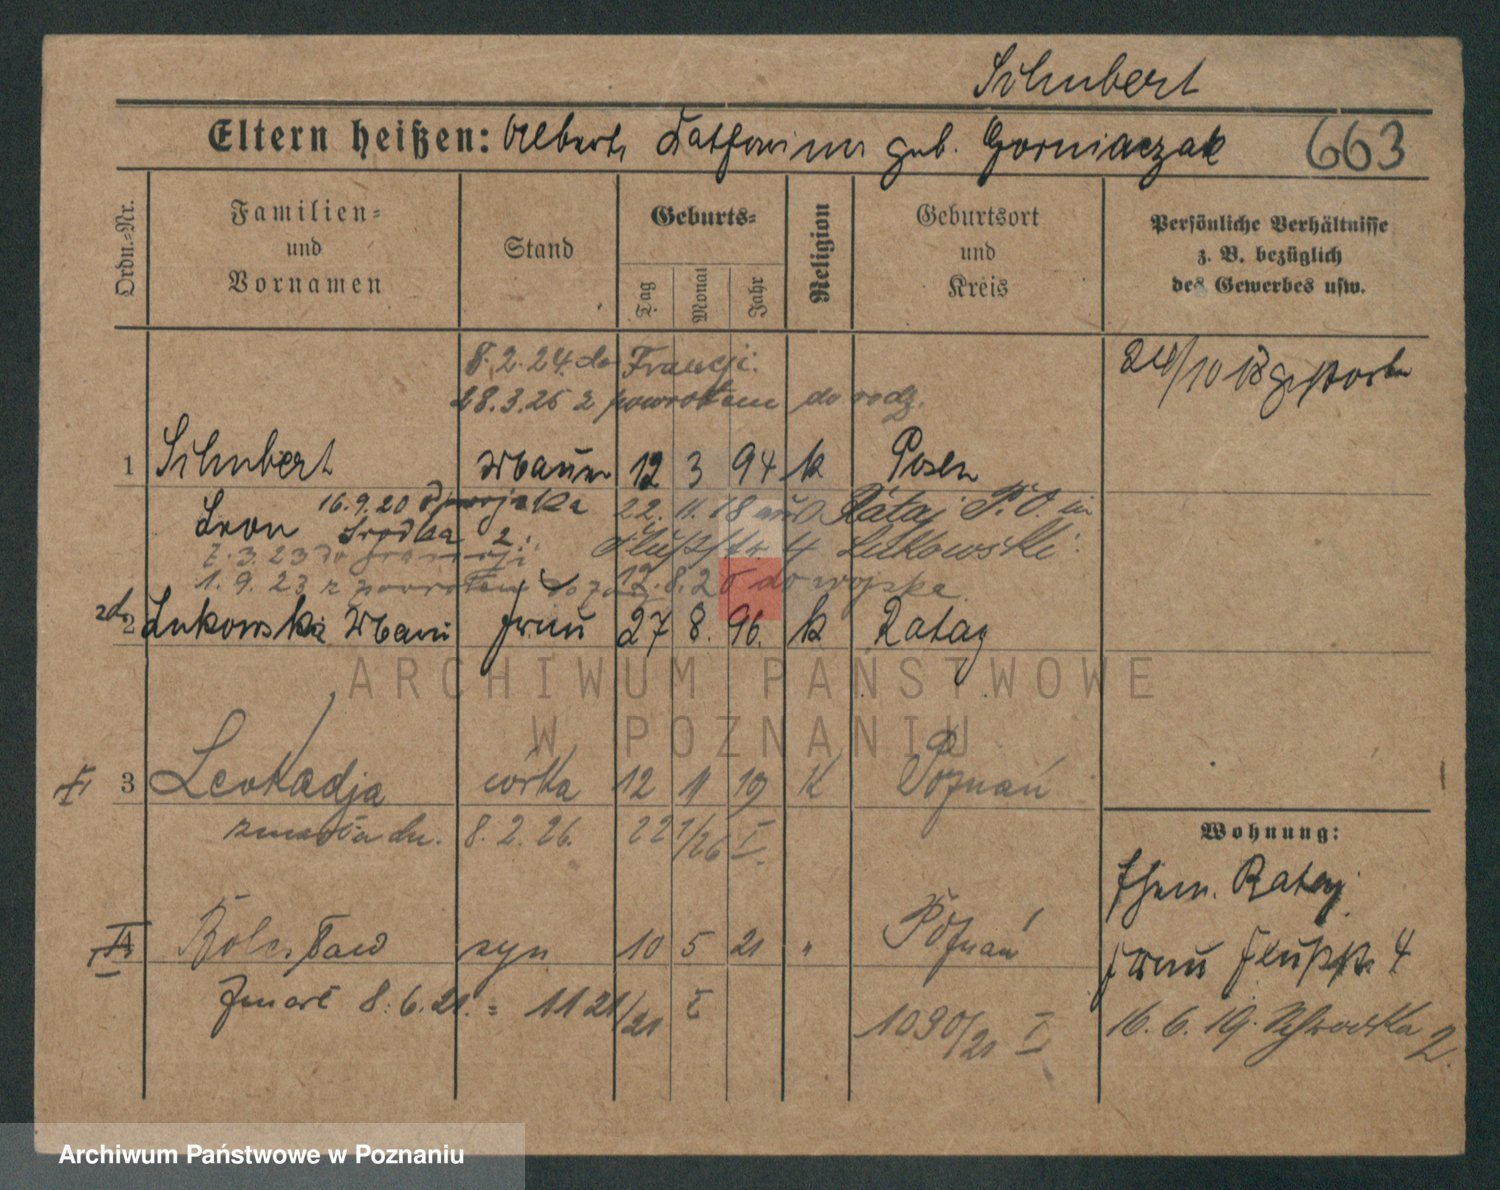 Schubert
Eltern heißen: Albert Katharina geb. Gorniaczak 663
Ordn.=Nr.
Familien=
und
Vornamen
Stand
Geburts=
Tag
Monat
Jahr
Religion
Geburtsort
und
Kreis
Persönliche Verhältnisse
z. B. bezüglich
des Gewerbes usw.
8.2.24. do Francji.
28.3.25 z powrotem do rodz.
24/10 18
1 Schubert 12 3 94 k Posen
16.9.20 22. 11. 18 aus Rataj P.O. in
Leon Srodka 2. Flußstr. 4 Lukowski.
7.3.23 do Francji
1.9.23 z powrotem 12.8.25 do wojska.
2 Lukowska Frau 27 8. 96. k Rataj
ARCHIWUM PAŃSTWOWE
W POZNANIU
I 3 Leokadja córka 12 11 19 k Poznań
zmarła dn. 8.2.26. 221/26 I.
Wohnung:
Ehem. Rataj
4 Bolesław syn 10 5 21 " Poznań
Frau Flußstr. 4
Zmarł 8.6.21. = 1121/21 I
1090/21 I
16.6.19. Schrodka 2.
Archiwum Państwowe w Poznaniu